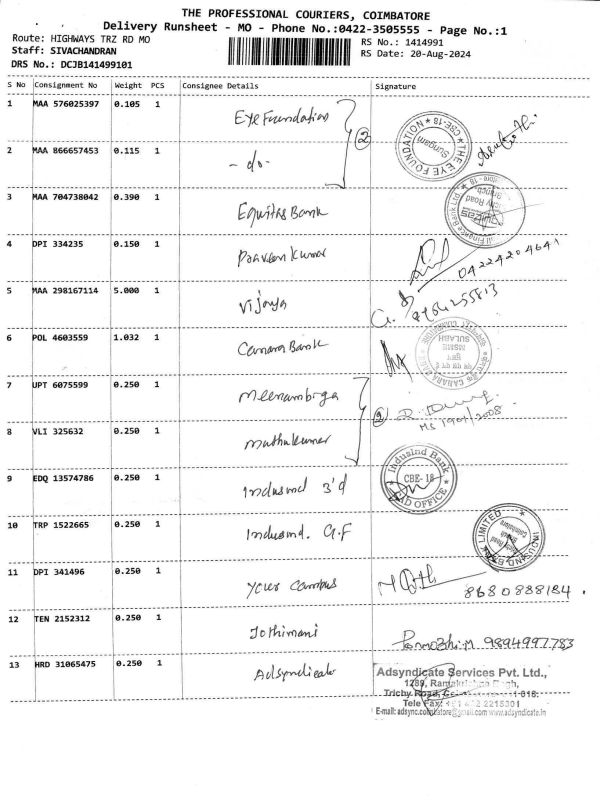 THE PROFESSIONAL COURIERS, COIMBATORE
Delivery Runsheet - MO - Phone No.:0422-3505555 - Page No.:1
Route: HIGHWAYS TRZ RD MO
RS No.: 1414991
Staff: SIVACHANDRAN
RS Date: 20-Aug-2024
DRS No.: DCJB141499101
S No Consignment No Weight PCS Consignee Details Signature
1 MAA 576025397 0.105 1 Eye Foundation
THE EYE FOUNDATION * CBE-18 *
Sungam
2 MAA 866657453 0.115 1 - do -
2
3 MAA 704738042 0.390 1 Equitas Bank
4 DPI 334235 0.150 1 Praveen Kumar
04224204641
5 MAA 298167114 5.000 1 Vijaya
9764255813
6 POL 4603559 1.032 1 Canara Bank
MSME
SULABH
CANARA
7 UPT 6075599 0.250 1 Meenambiga
8 VLI 325632 0.250 1 Muthukumar
2
9 EDQ 13574786 0.250 1 Indusind 3'd
Indusind Bank
CBE-18
OFFICE
10 TRP 1522665 0.250 1 Indusind. G.F
INDUSIND BANK LIMITED
Coimbatore
11 DPI 341496 0.250 1 Your Campus
8680888184.
12 TEN 2152312 0.250 1 Jothimani
9894997783
13 HRD 31065475 0.250 1 Adsyndicate
Adsyndicate Services Pvt. Ltd.,
Trichy Road,
www.adsyndicate.in